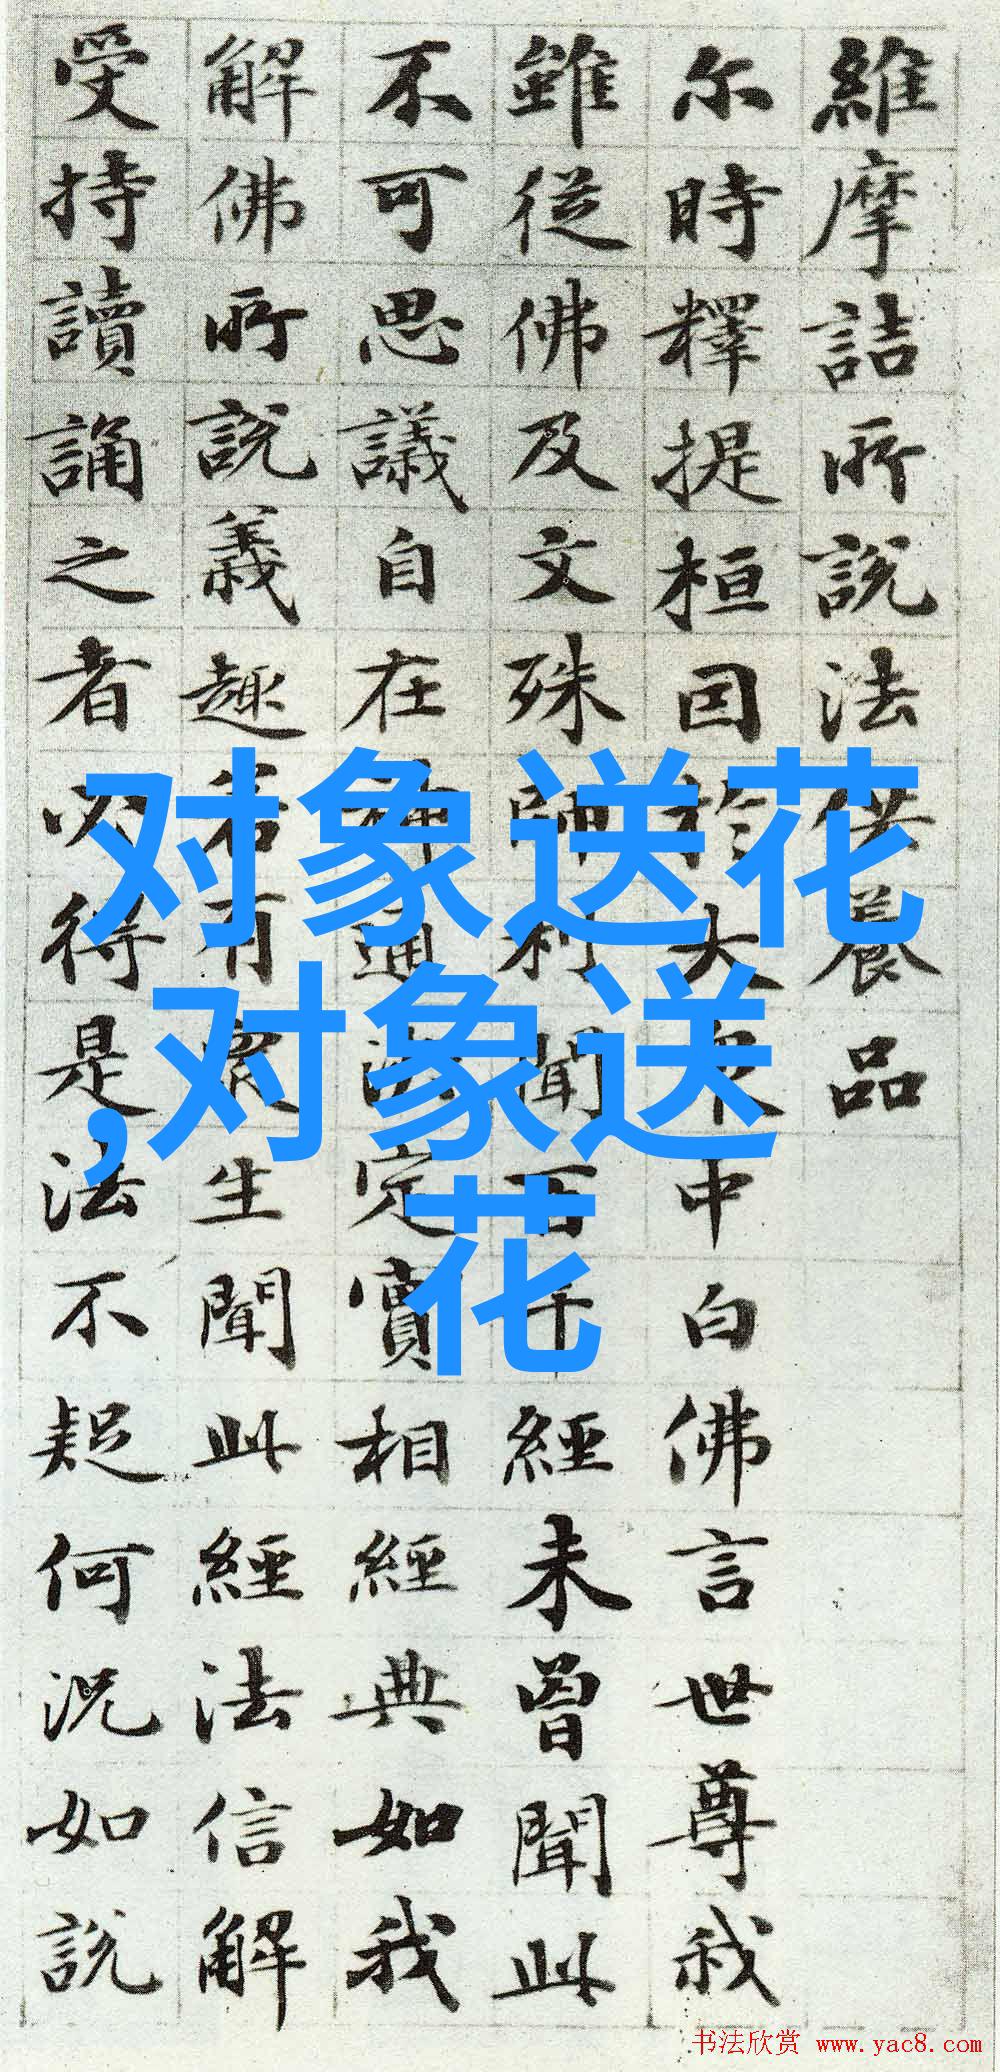 維摩詰所說法供養品
尔時釋提桓因於大衆中白佛言世尊我
雖從佛及文殊師利聞百千經未曾聞此
不可思議自在神通決定實相經典如我
解佛所說義趣若有衆生聞此經法信解
受持讀誦之者必得是法不疑何況如說
对象送花
,对象送
花
书法欣赏 www.yac8.com